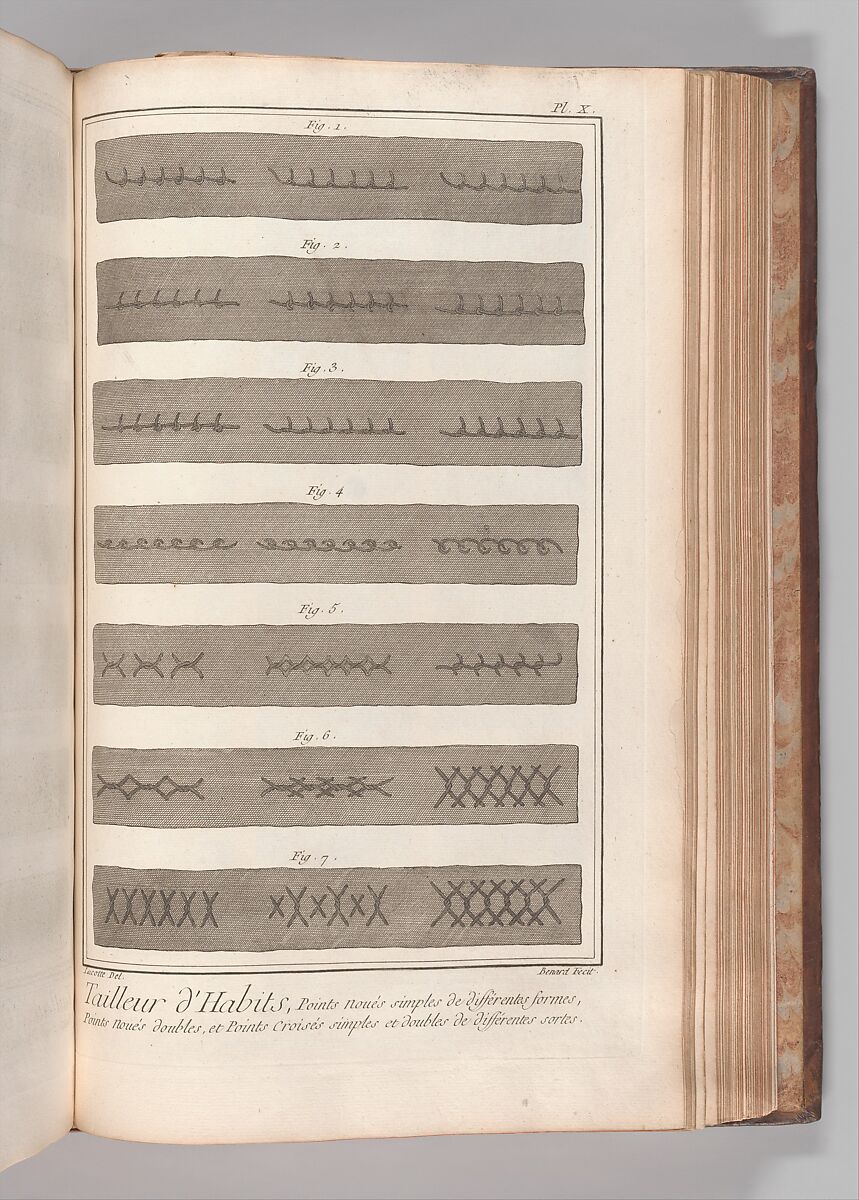 Pl. X.
Fig. 1.
Fig. 2.
Fig. 3.
Fig. 4
Fig. 5.
Fig. 6.
Fig. 7.
Lucotte Del.
Benard Fecit.
Tailleur d'Habits, Points noués simples de différentes formes,
Points noués doubles, et Points Croisés simples et doubles de différentes sortes.